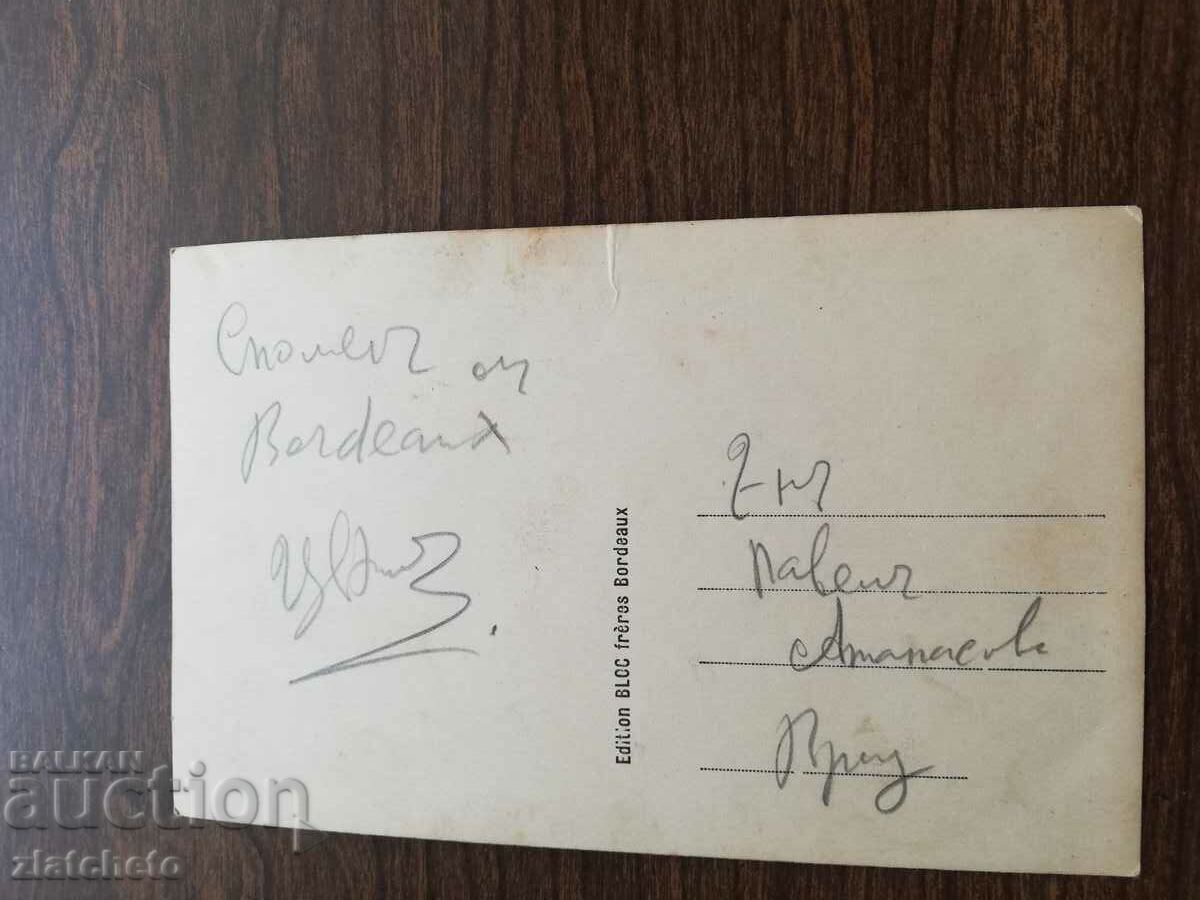 Споменъ от
Bordeaux
Edition BLOC frères Bordeaux
Г-нъ
Павелъ
Атанасовъ
BALKAN
auction
zlatcheto